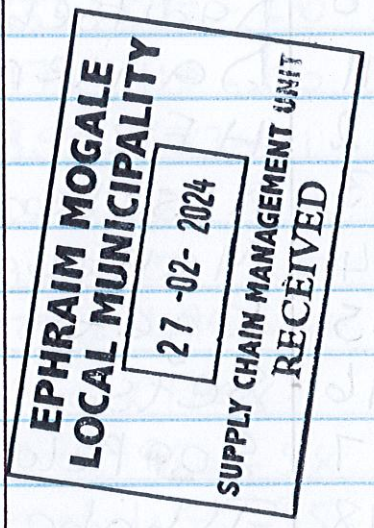 EPHRAIM MOGALE
LOCAL MUNICIPALITY
27 -02- 2024
SUPPLY CHAIN MANAGEMENT UNIT
RECEIVED